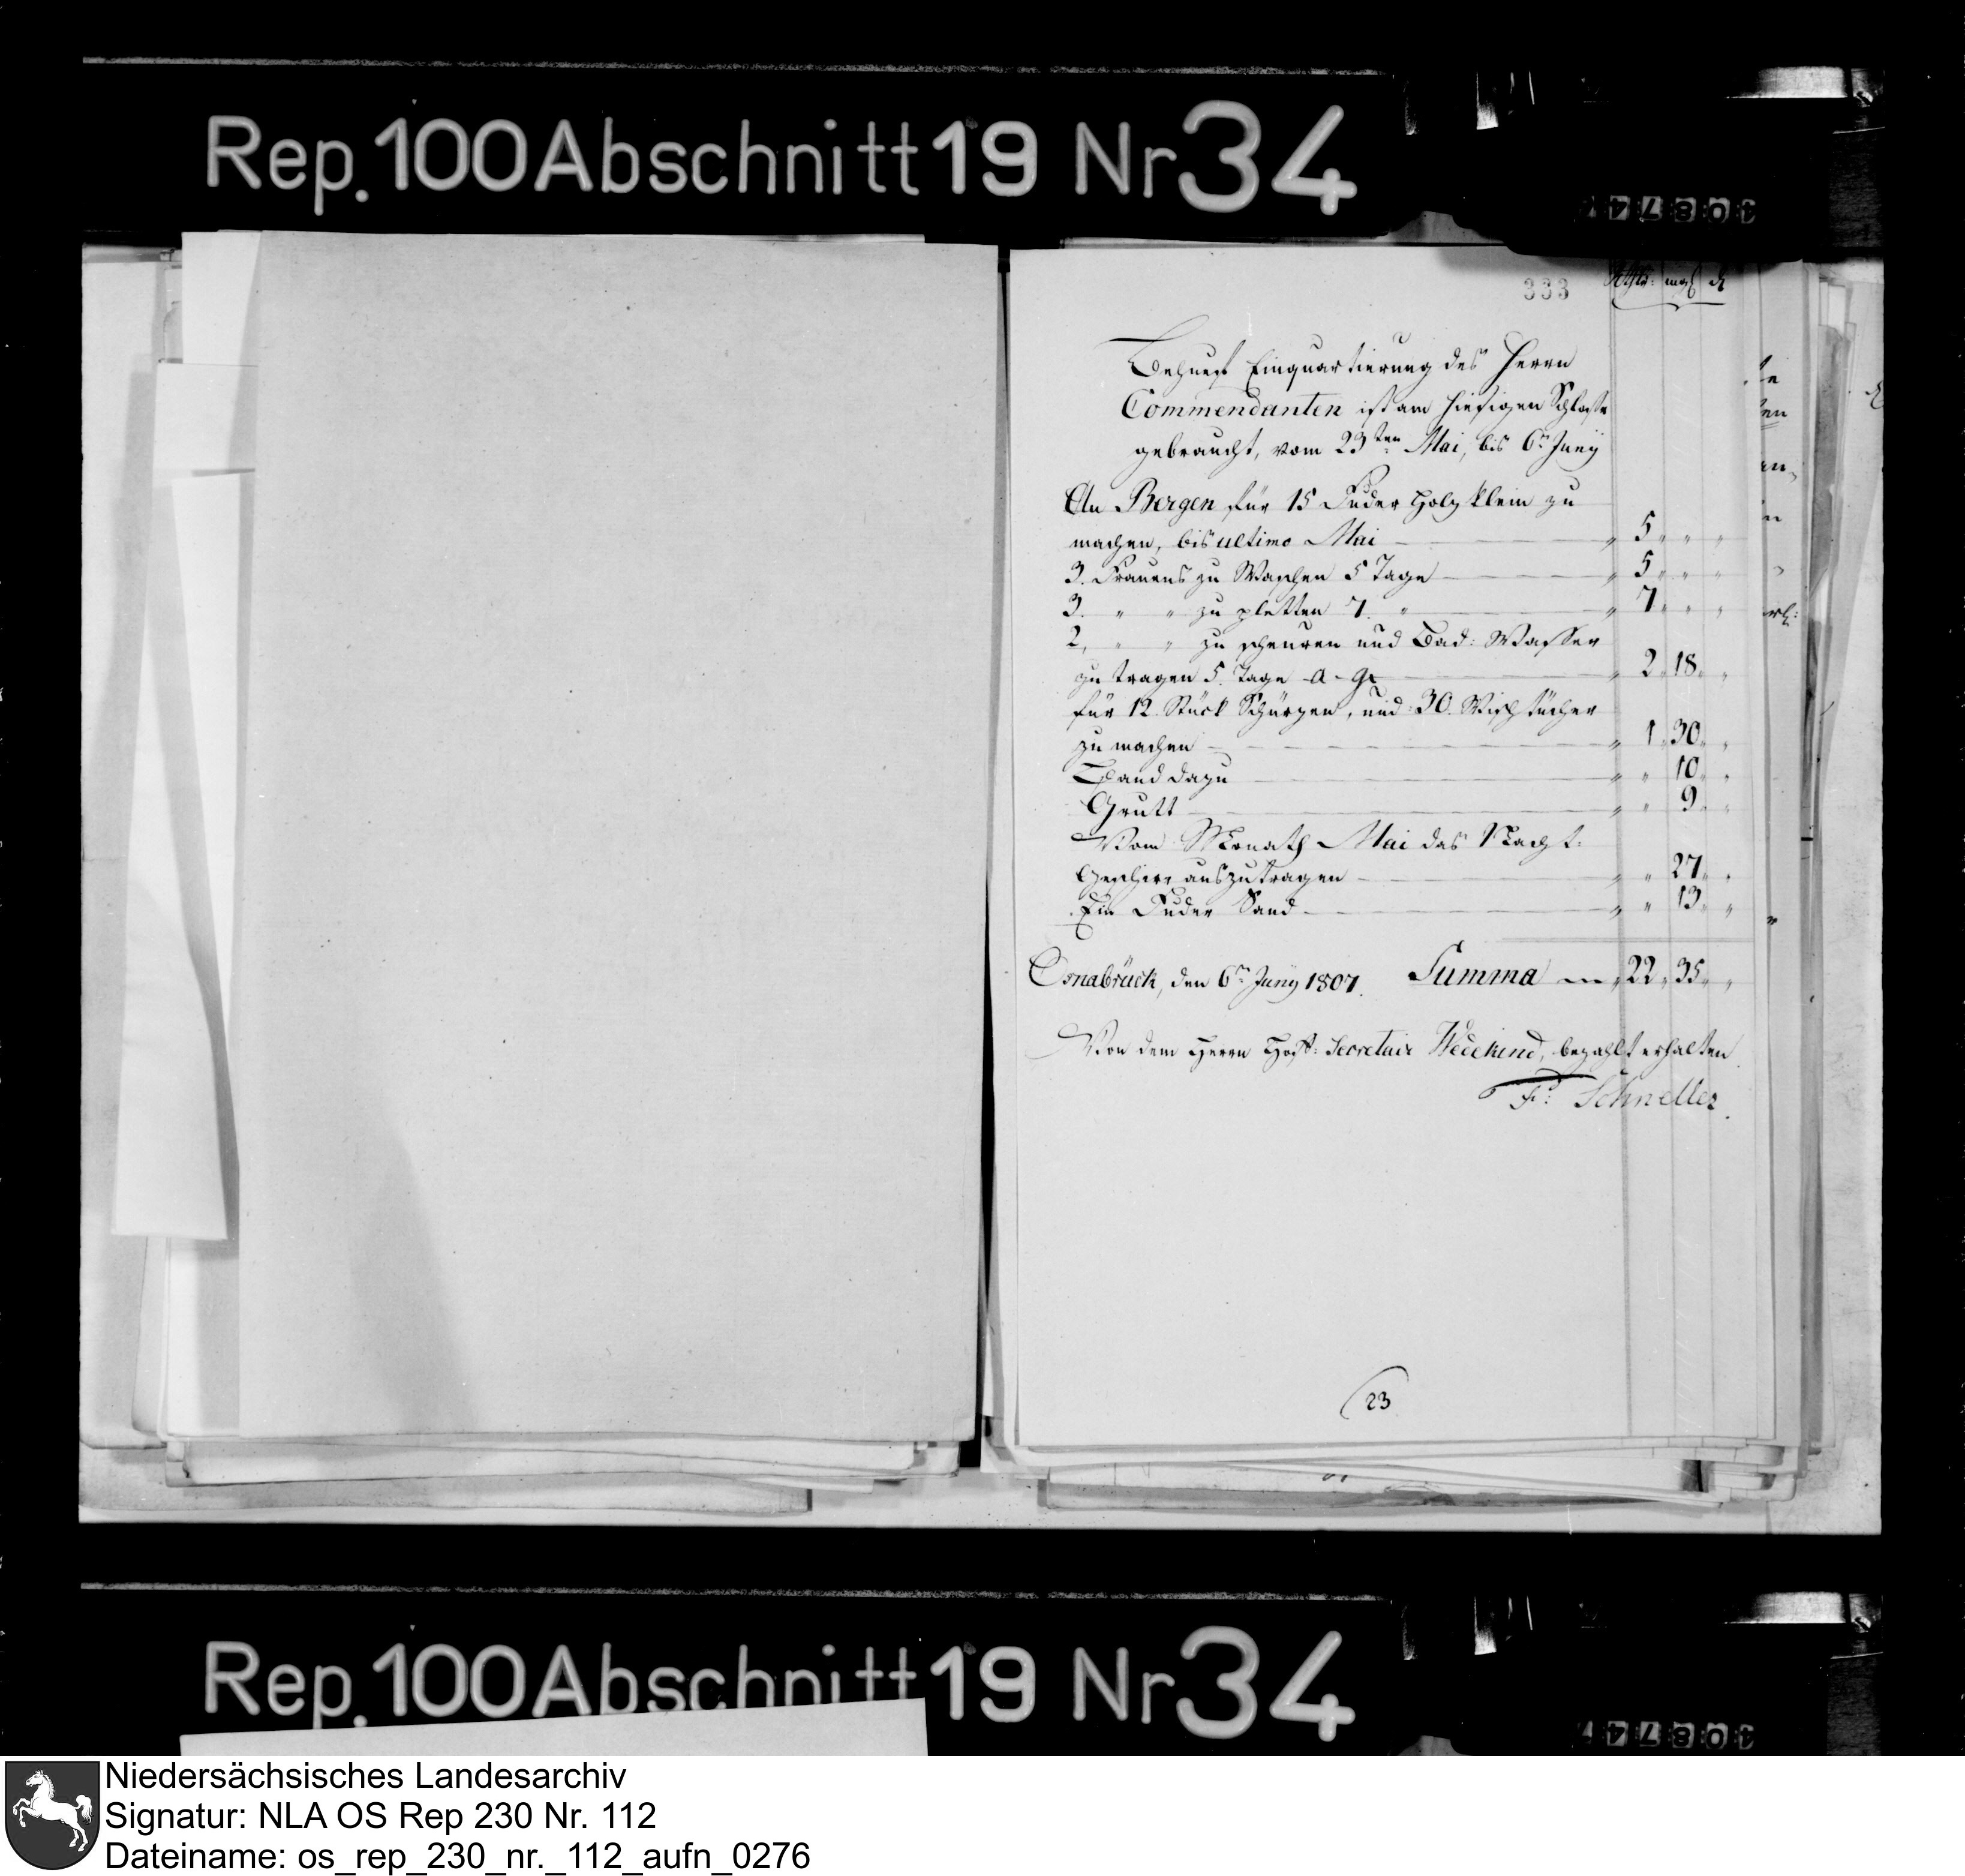 Rep. 100 Abschnitt 19 Nr 34
333
Rthlr: mgl d
Behuef Einquartierung des Herrn
Commendanten ist am hiesigen Schlosse
gebraucht, vom 23ten Mai, bis 6n Juny
An Bergen für 15 Fuder Holz klein zu
machen, bis ultimo Mai — „ 5 „ „ „
3. Frauens zu Waschen 5 Tage — „ 5 „ „ „
3. „ „ zu pletten 7. „ — „ 7 „ „ „
2, „ „ zu scheuren und Bad: Wasser
zu tragen 5. Tage — „ 2 „ 18 „ „
für 12. Stück Schürzen, und 30. Wischtücher
zu machen — „ 1 „ 30 „ „
Band dazu — „ „ 10 „ „
Grutt — „ „ 9 „ „
Vom Monath Mai das Nacht:
Geschirr auszutragen — „ „ 27 „ „
Ein Fuder Sand — „ „ 13 „ „
Osnabrück, den 6n Juny 1807. Summa „ 22 „ 35 „ „
Von dem Herrn Hof: Secretair Wedekind, bezahlt erhalten
F: Schneller.
23
Rep. 100 Abschnitt 19 Nr 34
Niedersächsisches Landesarchiv
Signatur: NLA OS Rep 230 Nr. 112
Dateiname: os_rep_230_nr._112_aufn_0276